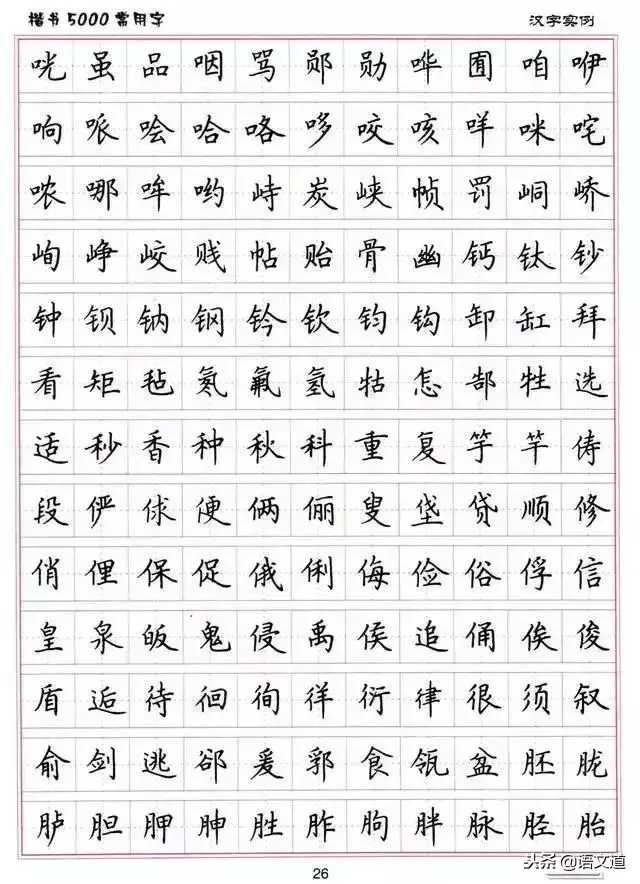 楷书5000常用字 汉字实例
咣虽品咽骂郧勋哗囿咱咿
响哌哙哈咯哆咬咳咩咪咤
哝哪哞哟峙炭峡帧罚峒峤
峋峥峧贱帖贻骨幽钙钛钞
钟钡钠钢钤钦钧钩卸缸拜
看矩毡氡氟氢牯怎郜牲选
适秒香种秋科重复竽竿俦
段俨俅便俩俪叟垡贷顺修
俏俚保促俄俐侮俭俗俘信
皇泉皈鬼侵禹侯追俑俟俊
盾逅待徊徇徉衍律很须叙
俞剑逃郤爰郛食瓴盆胚胧
胪胆胛胂胜胙朐胖脉胫胎
26
头条@语文道